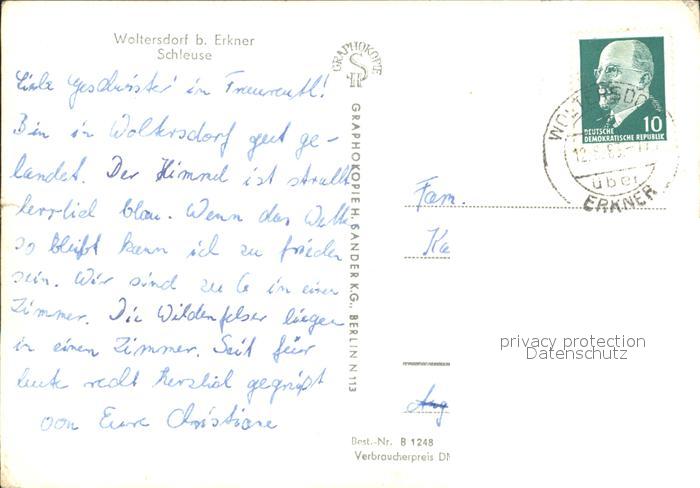 Woltersdorf b. Erkner
Schleuse
Liebe Geschwister in Fraureuth!
Bin in Woltersdorf gut ge-
landet. Der Himmel ist strahlt
herrlich blau. Wenn das Wetter
so bleibt kann ich zu frieden
sein. Wir sind zu 6 in einem
Zimmer. Die Wildenfelser liegen
in einem Zimmer. Seit für
heute recht herzlich gegrüßt
von Eure Christiane
GRAPHOKOPIE
GRAPHOKOPIE H. SANDER K.G., BERLIN N 113
DEUTSCHE
DEMOKRATISCHE REPUBLIK
10
WOLTERSDO
über
ERKNER
Fam.
Ka
privacy protection
Datenschutz
Aug
Best.-Nr. B 1248
Verbraucherpreis DM